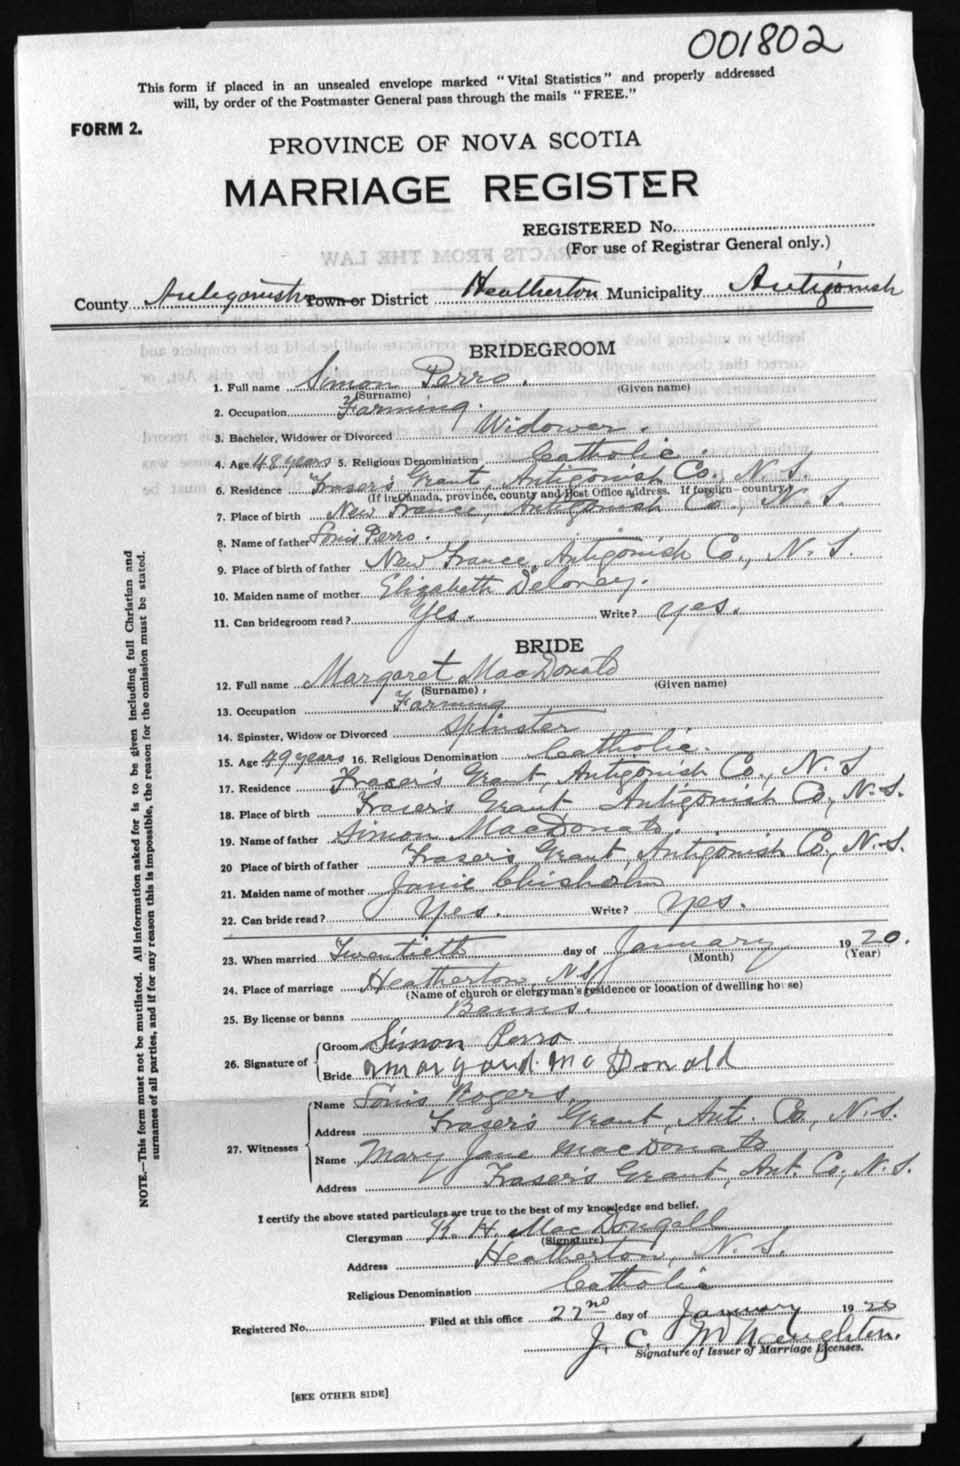 001802
This form if placed in an unsealed envelope marked "Vital Statistics" and properly addressed
will, by order of the Postmaster General pass through the mails "FREE."
FORM 2.
PROVINCE OF NOVA SCOTIA
MARRIAGE REGISTER
REGISTERED No.
(For use of Registrar General only.)
County Antigonish Town or District Heatherton Municipality Antigonish
BRIDEGROOM
1. Full name Simon Perro.
(Surname) (Given name)
2. Occupation Farming.
3. Bachelor, Widower or Divorced Widower.
4. Age 48 years 5. Religious Denomination Catholic.
6. Residence Fraser's Grant, Antigonish Co., N. S.
(If in Canada, province, county and Post Office address. If foreign—country.)
7. Place of birth New France, Antigonish Co., N. S.
8. Name of father Louis Perro.
9. Place of birth of father New France, Antigonish Co., N. S.
10. Maiden name of mother Elizabeth Deloney.
11. Can bridegroom read? Yes. Write? Yes.
BRIDE
12. Full name Margaret MacDonald
(Surname) (Given name)
13. Occupation Farming
14. Spinster, Widow or Divorced Spinster
15. Age 49 years 16. Religious Denomination Catholic.
17. Residence Fraser's Grant, Antigonish Co., N. S
18. Place of birth Fraser's Grant Antigonish Co., N. S.
19. Name of father Simon MacDonald.
20 Place of birth of father Fraser's Grant, Antigonish Co., N. S.
21. Maiden name of mother Janie Chisholm
22. Can bride read? Yes. Write? Yes.
23. When married Twentieth day of January 1920.
(Month) (Year)
24. Place of marriage Heatherton, N. S
(Name of church or clergyman's residence or location of dwelling house)
25. By license or banns Banns.
26. Signature of Groom Simon Perro
Bride Margaret McDonald
27. Witnesses Name Louis Rogers,
Address Fraser's Grant, Ant. Co., N. S.
Name Mary Jane MacDonald
Address Fraser's Grant, Ant. Co., N. S.
I certify the above stated particulars are true to the best of my knowledge and belief.
Clergyman R. H. MacDougall
(Signature)
Address Heatherton, N. S.
Religious Denomination Catholic
Registered No. Filed at this office 22nd day of January 1920
J. C. McNaughton.
Signature of Issuer of Marriage Licenses.
[SEE OTHER SIDE]
NOTE.—This form must not be mutilated. All information asked for is to be given including full Christian and
surnames of all parties, and if for any reason this is impossible, the reason for the omission must be stated.